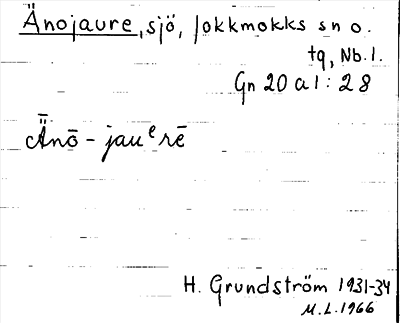 Änojaure, sjö, Jokkmokks sn o.
tq, Nb.l.
Gn 20 a 1 : 28
Ǟnō - jauᵉrē
H. Grundström 1931-34
M.L. 1966